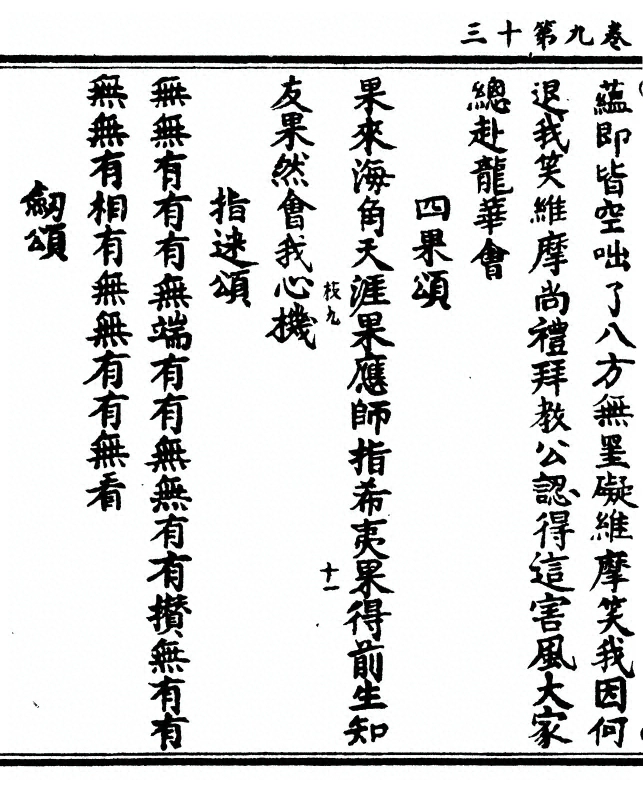 三十第九卷
蘊即皆空咄了八方無罣礙維摩笑我因何
退我笑維摩尚禮拜教公認得這害風大家
總赴龍華會
四果頌
果來海角天涯果應師指希夷果得前生知
枝九
十一
友果然會我心機
指迷頌
無無有有有無端有有無無有有攢無有有
無無有相有無無有有無看
劒頌